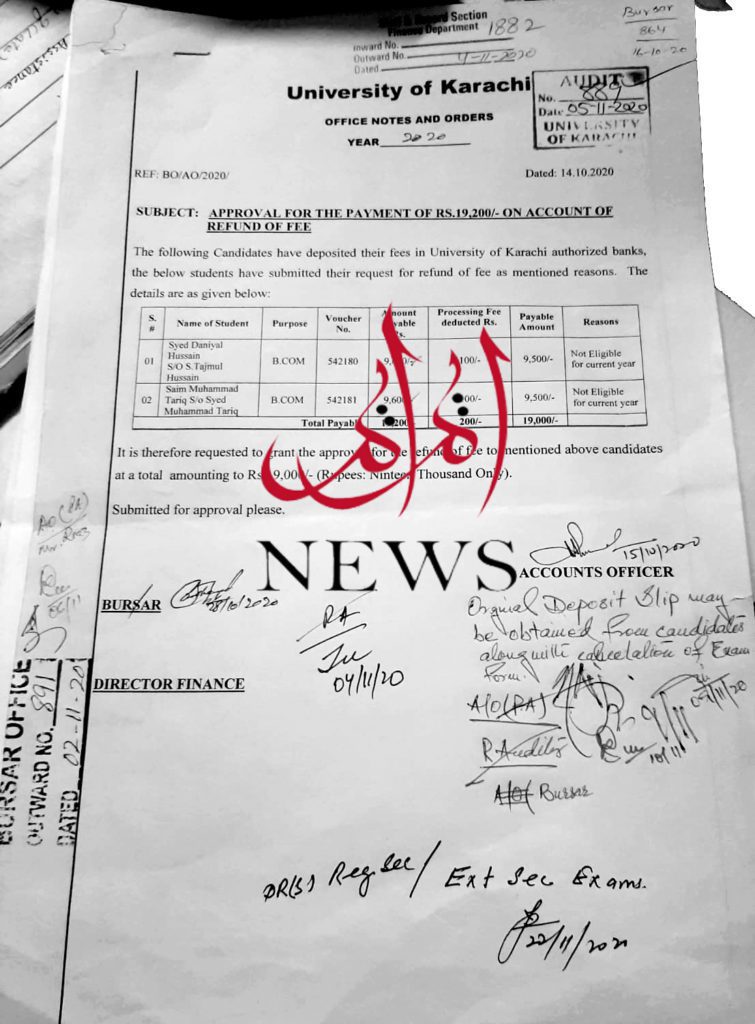 Section
Finance Department 1882
Inward No.
Outward No. 4-11-2020
Dated
Bursar
864
16-10-20
University of Karachi
AUDIT
No. 889
Date 05-11-2020
UNIVERSITY
OF KARACHI
OFFICE NOTES AND ORDERS
YEAR 2020
REF: BO/AO/2020/ Dated: 14.10.2020
SUBJECT: APPROVAL FOR THE PAYMENT OF RS.19,200/- ON ACCOUNT OF
REFUND OF FEE
The following Candidates have deposited their fees in University of Karachi authorized banks,
the below students have submitted their request for refund of fee as mentioned reasons. The
details are as given below:
S. # Name of Student Purpose Voucher No. Amount Processing Fee deducted Rs. Payable Amount Reasons
01 Syed Daniyal Hussain S/O S.Tajmul Hussain B.COM 542180 100/- 9,500/- Not Eligible for current year
02 Saim Muhammad Tariq S/o Syed Muhammad Tariq B.COM 542181 9,500/- Not Eligible for current year
Total 200/- 19,000/-
It is therefore requested to grant the for the of fee to mentioned above candidates
at a total amounting to (Rupees: Thousand Only).
Submitted for approval please.
NEWS
15/10/2020
ACCOUNTS OFFICER
BURSAR 28/10/2020
RA
04/11/20
DIRECTOR FINANCE
Deposit Slip may
be obtained from candidates
of Exam
form.
A/O (RA)
R Auditor
10/11
A/O Bursar
BURSAR OFFICE
OUTWARD NO. 891
DATED 02-11-20
Reg Sec / Ext Sec Exams.
22/11/2020